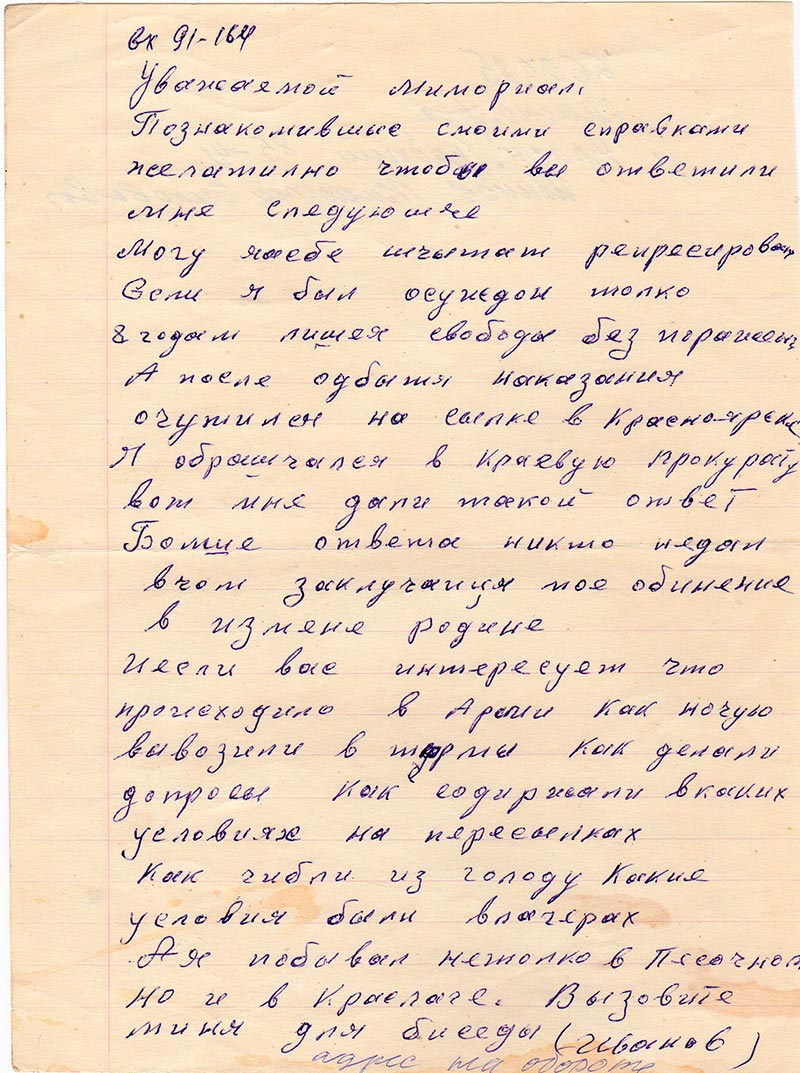 вх 91-164
Уважаемой мимориал
Познакомившыс смоими справками
желатилно чтобы вы ответили
мне следующяе
Могу ясебе шчытат репресирован
Если я был осуждон толко
8 годам лишея свободы без поражен
А после одбытя наказания
очутился на сылке в Красноярске
Я обрашчался в Краевую прокурату
вот мне дали такой ответ
Болше ответа никто недал
вчом заклучаиця мое обинение
в измяне родине
Иесли вас интересует что
происходило в Армии как ночую
вывозили в тюрмы как делали
допросы как содиржали вкаких
условиях на пересылках
Как гибли из голоду Какие
условия были влагерах
А я побывал нетолко в Песочном
но и в Краслаге. Вызовите
миня для биседы (Иванов)
адрес на обороте